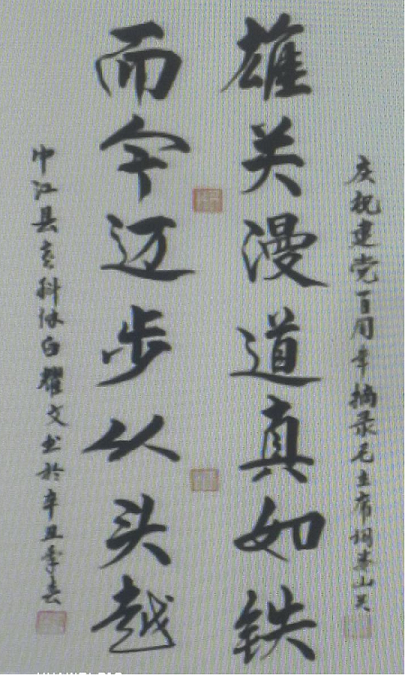 庆祝建党百周年摘录毛主席词娄山关
雄关漫道真如铁
而今迈步从头越
中江县老科协白耀文书於辛丑季春